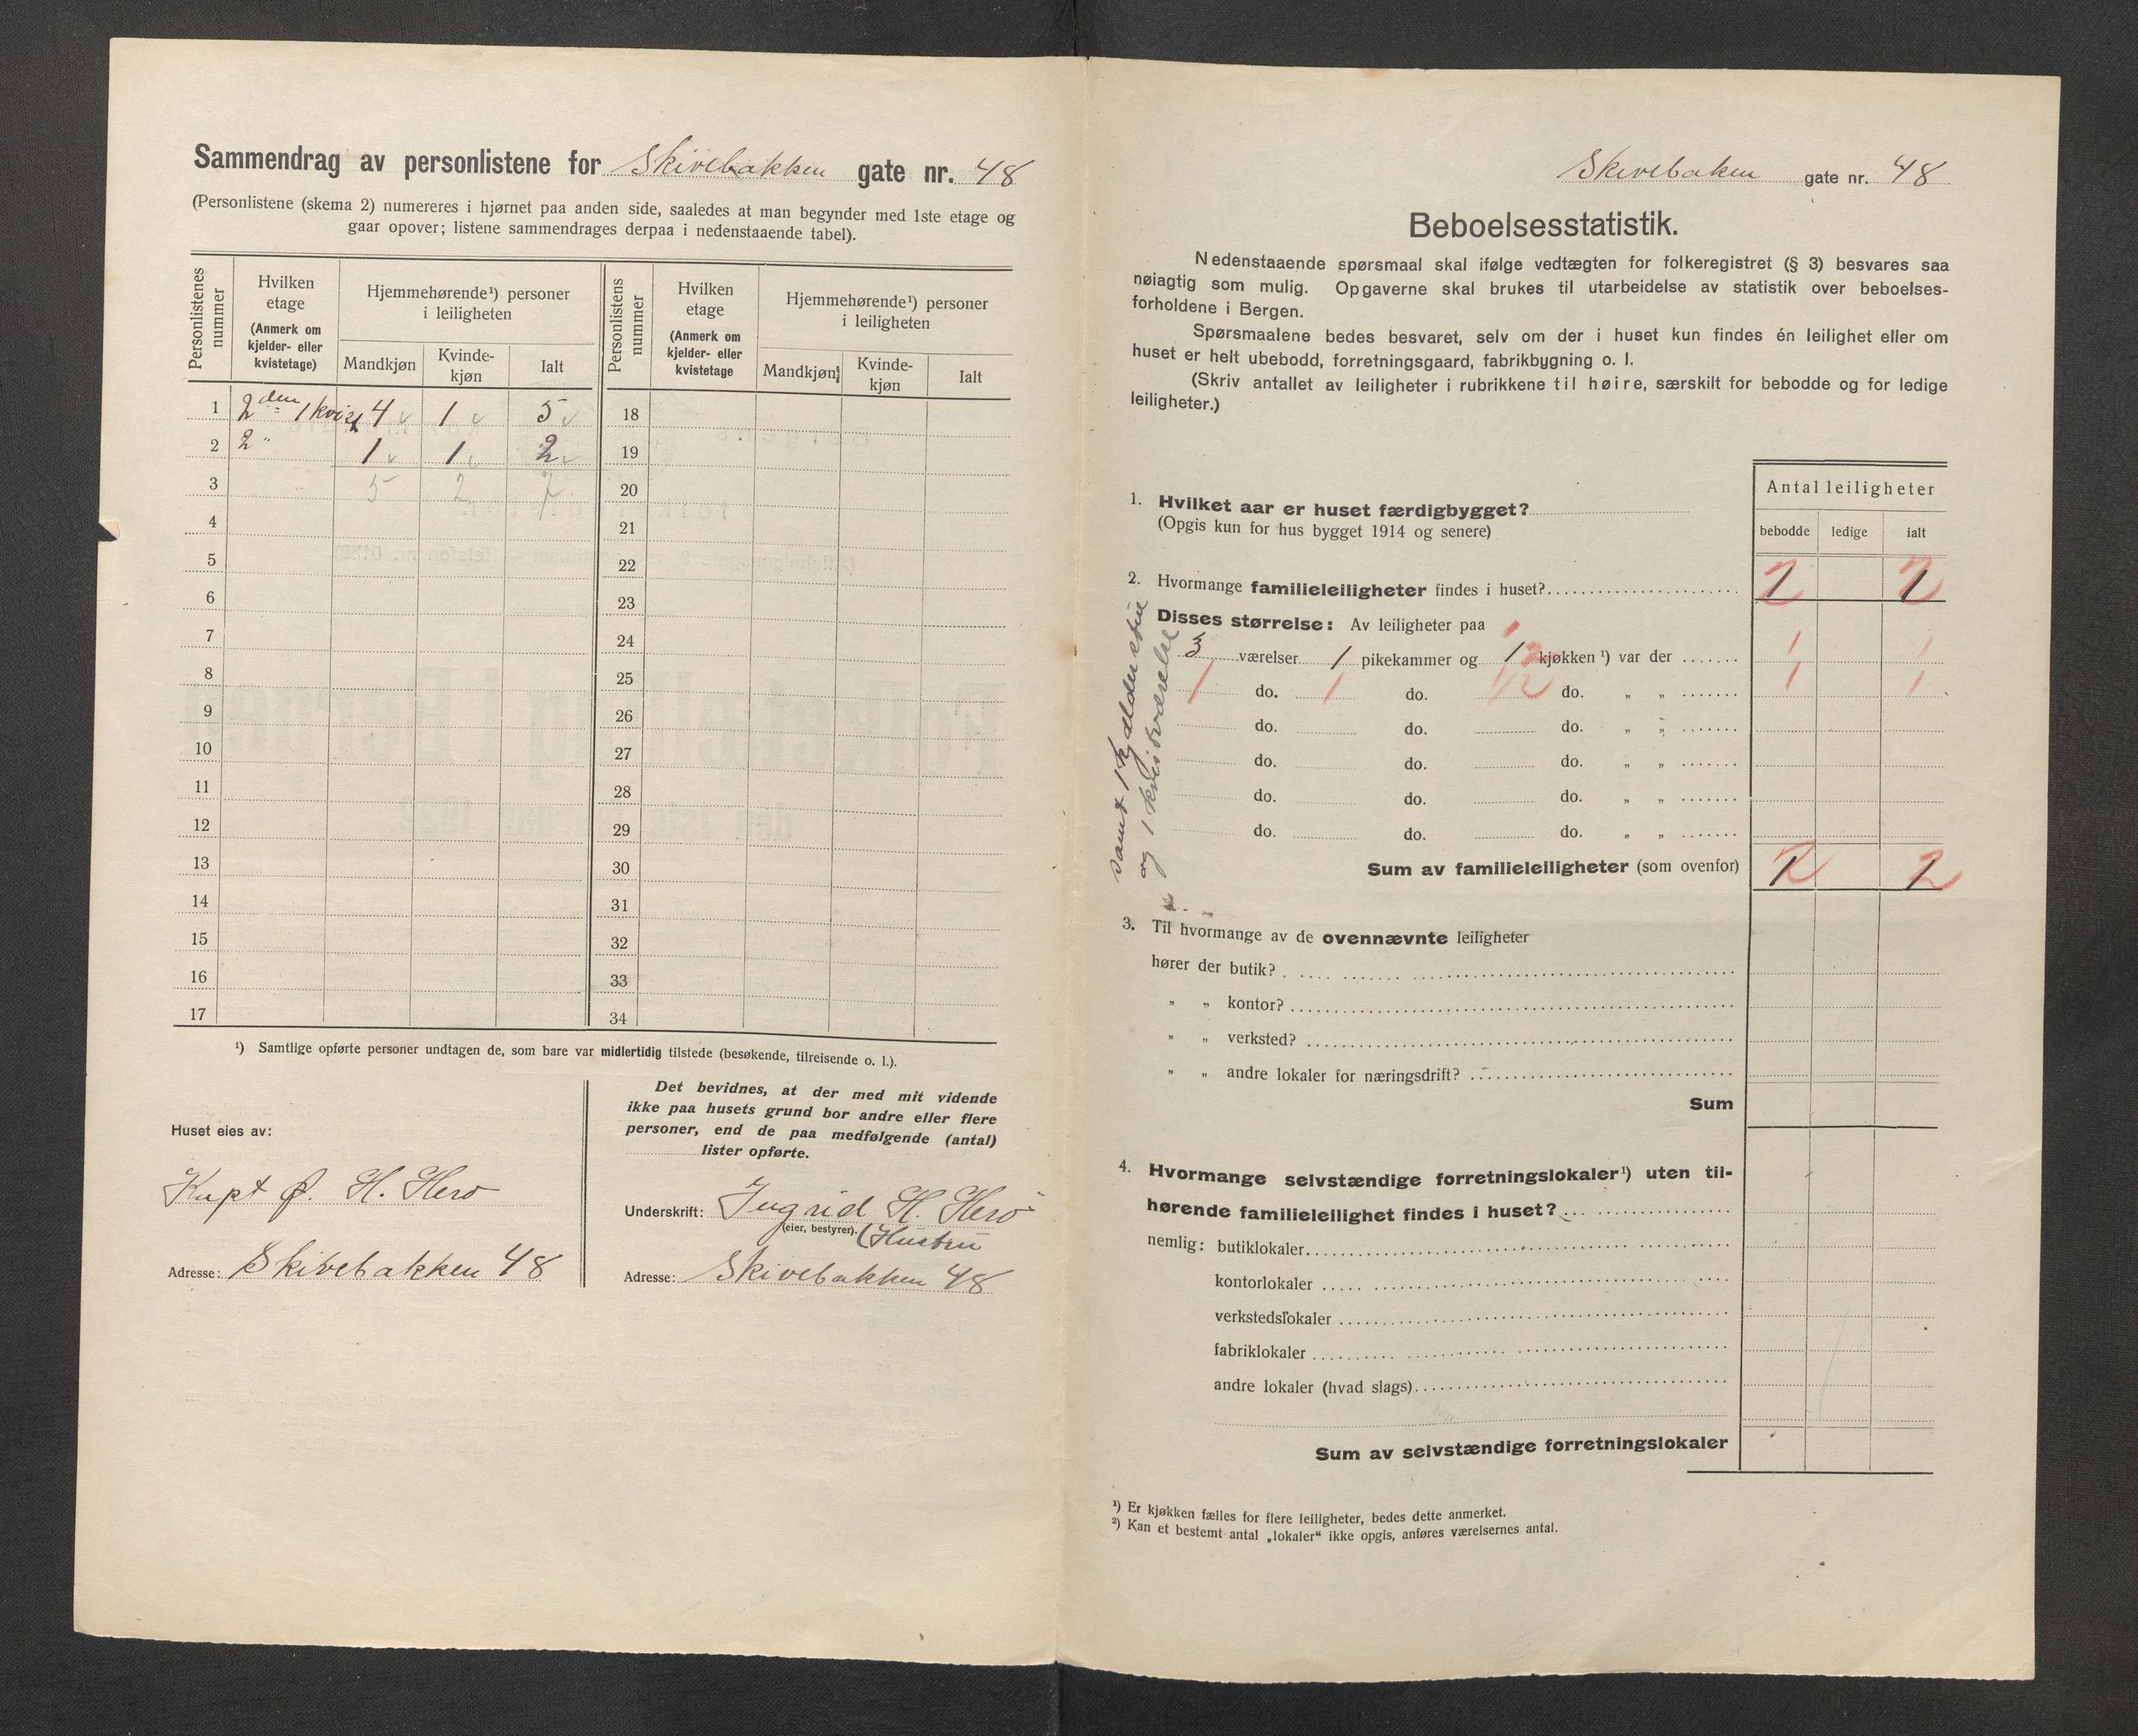 Sammendrag av personlistene for Skivebakken gate nr. 48
(Personlistene (skema 2) numereres i hjørnet paa anden side, saaledes at man begynder med 1ste etage og
gaar opover; listene sammendrages derpaa i nedenstaaende tabel).
Personlistenes nummer | Hvilken etage (Anmerk om kjelder- eller kvistetage) | Hjemmehørende¹) personer i leiligheten | Personlistens nummer | Hvilken etage (Anmerk om kjelder- eller kvistetage | Hjemmehørende¹) personer i leiligheten
Mandkjøn | Kvinde-kjøn | Ialt | Mandkjøn | Kvinde-kjøn | Ialt
1 2den 1 kvist 4 v 1 v 5 v 18
2 2 " 1 v 1 v 2 v 19
3 5 2 7 20
4 21
5 22
6 23
7 24
8 25
9 26
10 27
11 28
12 29
13 30
14 31
15 32
16 33
17 34
¹) Samtlige opførte personer undtagen de, som bare var midlertidig tilstede (besøkende, tilreisende o. l.).
Huset eies av:
Kapt Ø. H. Herø
Adresse: Skivebakken 48
Det bevidnes, at der med mit vidende
ikke paa husets grund bor andre eller flere
personer, end de paa medfølgende (antal)
lister opførte.
Underskrift: Ingrid H. Herø
(eier, bestyrer). (Hustru
Adresse: Skivebakken 48
Skivebaken gate nr. 48
Beboelsesstatistik.
Nedenstaaende spørsmaal skal ifølge vedtægten for folkeregistret (§ 3) besvares saa
nøiagtig som mulig. Opgaverne skal brukes til utarbeidelse av statistik over beboelses-
forholdene i Bergen.
Spørsmaalene bedes besvaret, selv om der i huset kun findes én leilighet eller om
huset er helt ubebodd, forretningsgaard, fabrikbygning o. l.
(Skriv antallet av leiligheter i rubrikkene til høire, særskilt for bebodde og for ledige
leiligheter.)
Antal leiligheter
bebodde ledige ialt
1. Hvilket aar er huset færdigbygget?
(Opgis kun for hus bygget 1914 og senere)
2. Hvormange familieleiligheter findes i huset? 2 2
Disses størrelse: Av leiligheter paa
3 værelser 1 pikekammer og 1 kjøkken ¹) var der 1 1
1 do. 1 do. 1/2 do. " " 1 1
do. do. do. " "
do. do. do. " "
do. do. do. " "
do. do. do. " "
samt 1 kjælderstue
og 1 kvistværelse
Sum av familieleiligheter (som ovenfor) 2 2
3. Til hvormange av de ovennævnte leiligheter
hører der butik?
" " kontor?
" " verksted?
" " andre lokaler for næringsdrift?
Sum
4. Hvormange selvstændige forretningslokaler¹) uten til-
hørende familieleilighet findes i huset?
nemlig: butiklokaler
kontorlokaler
verkstedslokaler
fabriklokaler
andre lokaler (hvad slags)
Sum av selvstændige forretningslokaler
¹) Er kjøkken fælles for flere leiligheter, bedes dette anmerket.
²) Kan et bestemt antal „lokaler“ ikke opgis, anføres værelsernes antal.